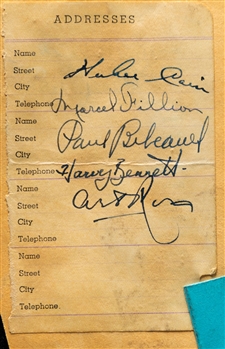 ADDRESSES
Name
Street Cain
City
Telephone Marcel Fillion
Name
Street Paul Bibeault
City
Telephone Harvey Bennett
Name
Street Art Ross
City
Telephone
Name
Street
City
Telephone.